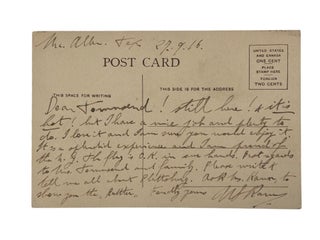 Mc Allen. Tex 27.9.16.
POST CARD
UNITED STATES
AND CANADA
ONE CENT
PLACE
STAMP HERE
FOREIGN
TWO CENTS
THIS SPACE FOR WRITING
THIS SIDE IS FOR THE ADDRESS
Dear Townsend! still here! & it is
hot! but I have a nice job and plenty to
do. I love it and I am sure you would enjoy it.
It is a splendid experience and I am proud of
the N.Y. The flag is O.K. in our hands. Best regards
to Mrs. Townsend and family. Please write &
tell me all about Plattsburg. Ask Mr.
to
show you the Kindly yours